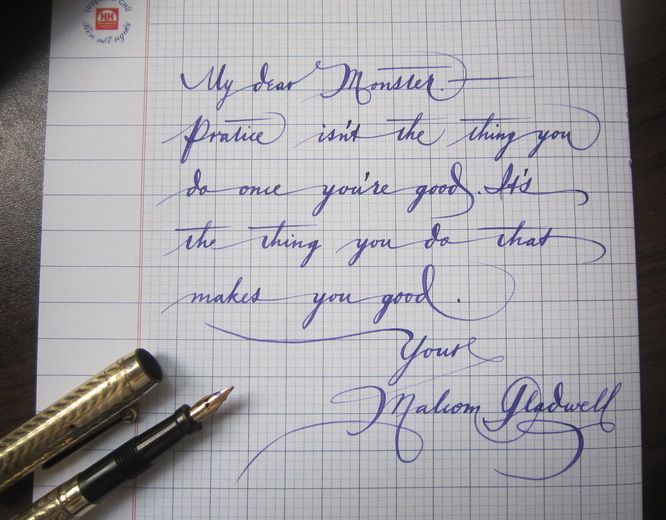 LUYỆN CHỮ
HH
Rèn nết người
My dear Monster.
Pratice isn't the thing you
do once you're good. It's
the thing you do that
makes you good.
Yours
Malcom Gladwell